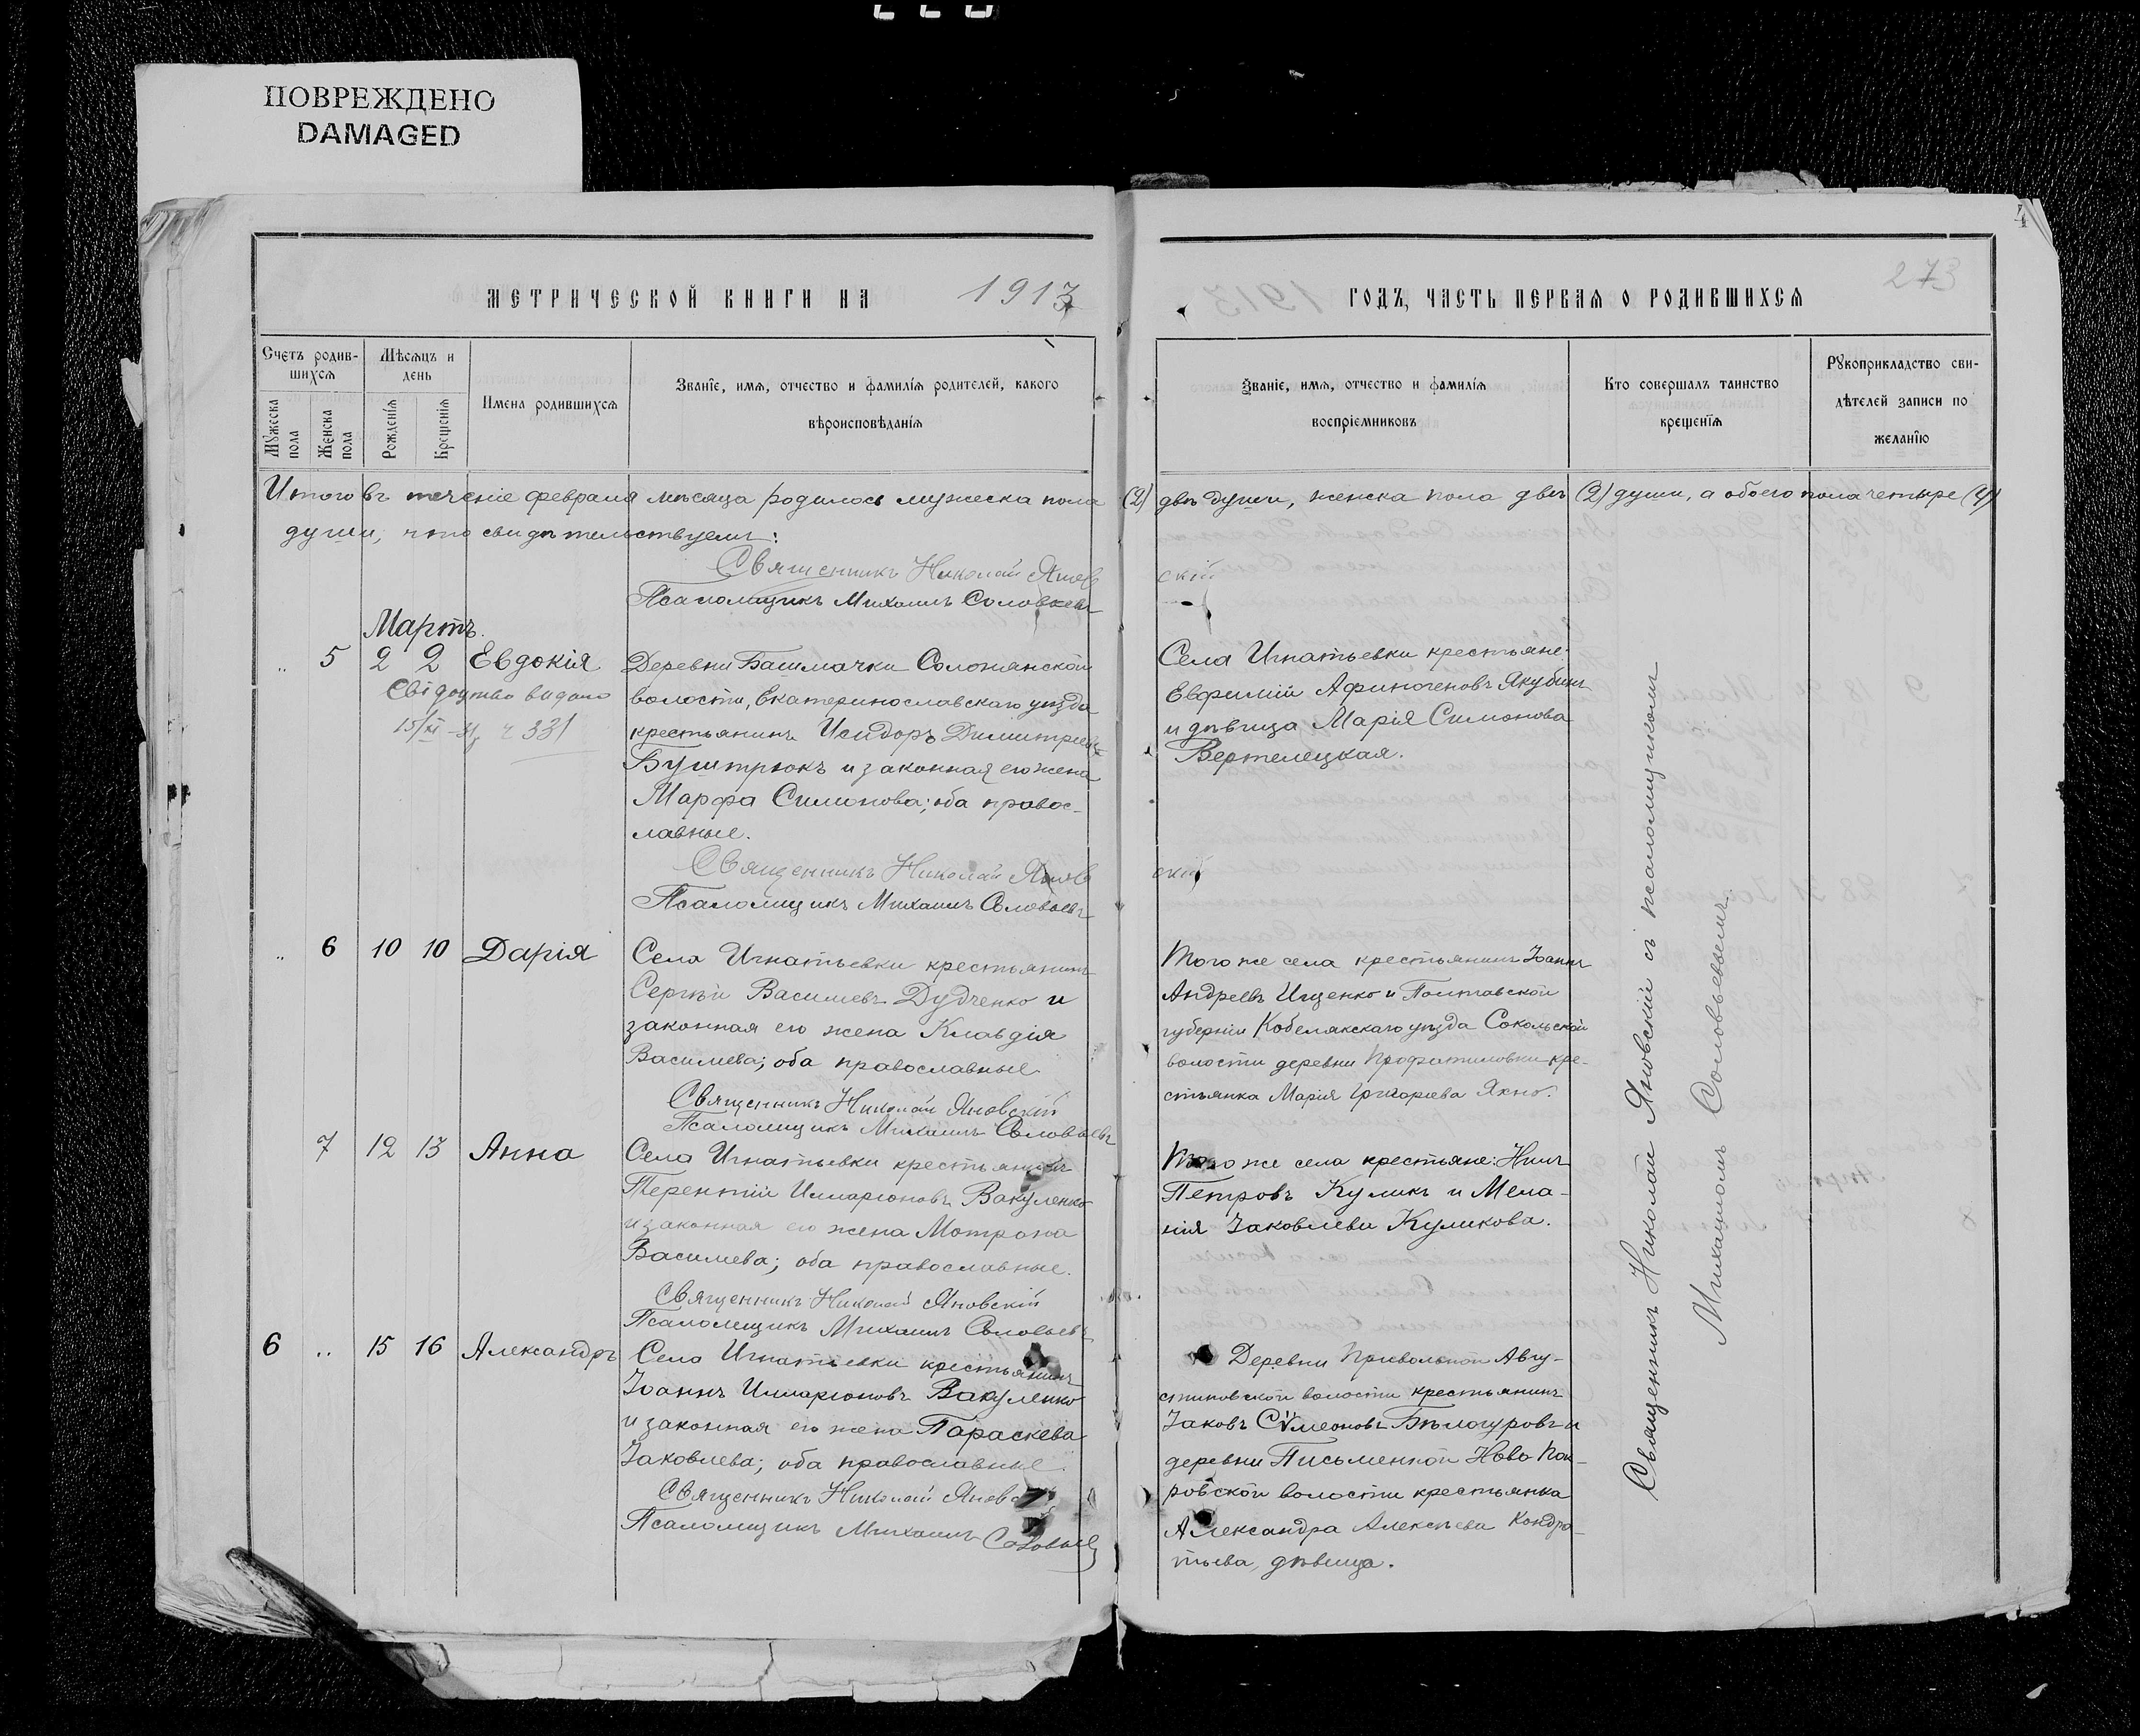 ПОВРЕЖДЕНО
DAMAGED
4
273
МЕТРИЧЕСКОЙ КНИГИ НА 1913
ГОДЪ, ЧАСТЬ ПЕРВАЯ О РОДИВШИХСЯ
Счетъ родив-
шихся
Мужеска
пола
Женска
пола
Мѣсяцъ и
день
Рожденія
Крещенія
Имена родившихся
Званіе, имя, отчество и фамилія родителей, какого
вѣроисповѣданія
Званіе, имя, отчество и фамилія
воспріемниковъ
Кто совершалъ таинство
крещенія
Рукоприкладство сви-
дѣтелей записи по
желанію
Итого въ теченіе февраля мѣсяца родилось мужеска пола (2) двѣ души, женска пола двѣ (2) души, а обоего пола четыре (4)
души, что свидѣтельствуемъ:
Священникъ Николай Яновскій
Псаломщикъ Михаилъ Соловьевъ
Мартъ.
„ 5 2 2 Евдокія
Свідоцтво видано
15/XI ч 331
Деревни Башмачки Солонянской
волости, Екатеринославскаго уѣзда
крестьянинъ Исидоръ Димитріевъ
Буштрюкъ и законная его жена
Марфа Симонова; оба правос-
лавные.
Священникъ Николай Яновскій
Псаломщикъ Михаилъ Соловьевъ
Села Игнатьевки крестьяне:
Евфимій Афиногеновъ Якубинъ
и дѣвица Марія Симонова
Вертелецкая.
„ 6 10 10 Дарія
Села Игнатьевки крестьянинъ
Сергѣй Василіевъ Дудченко и
законная его жена Клавдія
Василіева; оба православные.
Священникъ Николай Яновскій
Псаломщикъ Михаилъ Соловьевъ
Того же села крестьянинъ Іоаннъ
Андреевъ Ищенко и Полтавской
губерніи Кобелякскаго уѣзда Сокольской
волости деревни кре-
стьянка Марія Григоріева Яхно.
7 12 13 Анна
Села Игнатьевки крестьянинъ
Терентій Илларіоновъ Вакуленко
и законная его жена Мотрона
Василіева; оба православные.
Священникъ Николай Яновскій
Псаломщикъ Михаилъ Соловьевъ
Того же села крестьяне: Нилъ
Петровъ Куликъ и Мела-
нія Іаковлева Куликова.
6 „ 15 16 Александръ
Села Игнатьевки крестьянинъ
Іоаннъ Илларіоновъ Вакуленко
и законная его жена Параскева
Іаковлева; оба православные.
Священникъ Николай Яновскій
Псаломщикъ Михаилъ Соловьевъ
Деревни Привольной Авгу-
стиновской волости крестьянинъ
Іаковъ Сѵмеоновъ Бѣлогуровъ и
деревни Письменной Ново Пок-
ровской волости крестьянка
Александра Алексѣева Кондра-
тьева, дѣвица.
Священникъ Николай Яновскій съ псаломщикомъ
Михаиломъ Соловьевымъ.